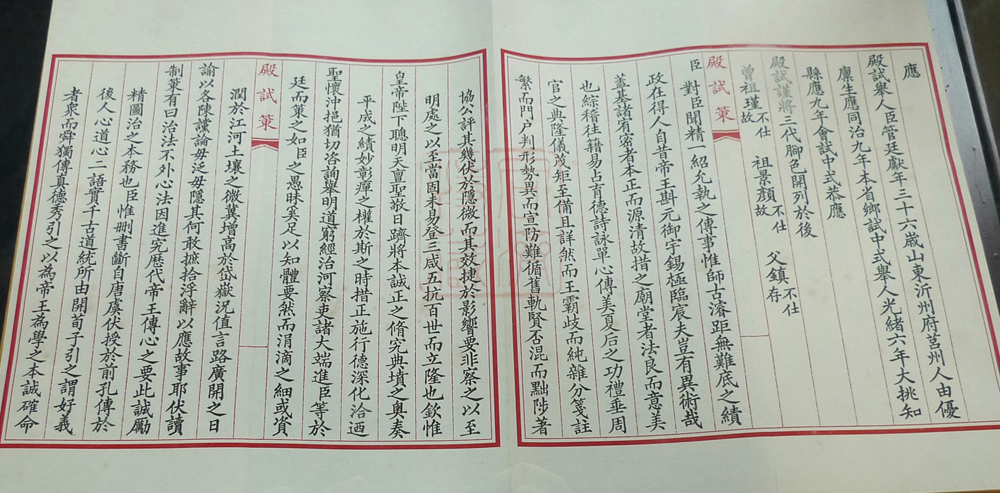 應
殿試舉人臣管廷獻年三十六歲山東沂州府莒州人由優
廩生應同治九年本省鄉試中式舉人光緒六年大挑知
縣應九年會試中式恭應
殿試謹將三代腳色開列於後
曾祖瑾不仕故 祖景顏不仕故 父鎮不仕存
殿試策
臣對臣聞精一紹允執之傳事惟師古濬距無難底之績
政在得人自昔帝王斟元御宇錫極臨宸夫豈有異術哉
蓋基諸宥密者本正而源清故措之廟堂者法良而意美
也綜稽往籍易占育德詩詠單心傳美夏后之功禮垂周
官之典隆儀茂矩至備且詳然而王霸歧而純雜分箋註
繁而門户判形勢異而宣防難循舊軌賢否混而黜陟著
協公評其幾伏於隱微而其效捷於影響要非察之以至
明處之以至當固未易登三咸五抗百世而立隆也欽惟
皇帝陛下聰明天亶聖敬日躋將本誠正之脩究典墳之奥奏
平成之績妙彰癉之權於斯之時措正施行德深化洽迺
聖懷沖挹猶切咨詢舉明道窮經治河察吏諸大端進臣等於
廷而策之如臣之愚昧奚足以知體要然而涓滴之細或資
殿試策
潤於江河土壤之微冀增高於岱嶽況值言路廣開之日
諭以各陳讜論毋泛毋隱其何敢摭拾浮辭以應故事耶伏讀
制策有曰治法不外心法因進究歷代帝王傳心之要此誠勵
精圖治之本務也臣惟刪書斷自唐虞伏授於前孔傳於
後人心道心二語實千古道統所由開荀子引之謂好義
者衆而舜獨傳真德秀引之以為帝王為學之本誠確命